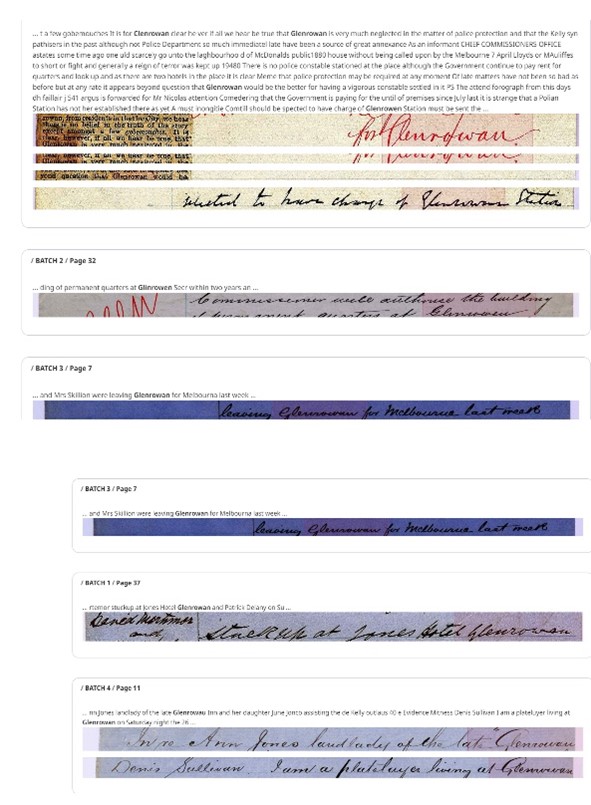 ... t a few gobemouches It is for Glenrowan clear he ver if all we hear be true that Glenrowan is very much neglected in the matter of police protection and that the Kelly syn
pathisers in the past although not Police Department so much immediatel late have been a source of great annexance As an informant CHIEF COMMISSIONERS OFFICE
astates some time ago one old scarcely go onto the laghbourhoo d of his public house without being called upon by the Melbourne 7 April Lloyds or MAuliffes
to short of fight and generally a reign of terror was kept up 19480 There is no police constable stationed at the place although the Government continue to pay rent for
quarters and look up and as there are two hotels in the place it is clear Meme that police protection may be required at any moment Of late matters have not been so bad
before but at any rate it appears beyond question that Glenrowan would be the better for having a vigorous constable settled in it PS The attend forograph from this days
dh faillar j 541 argus is forwarded for Mr Nicolas attention Comedering that the Government is paying for the until of premises since July last it is strange that a Polian
Station has not her established there as yet A must inongible Contill should be spected to have charge of Glenrowan Station must be sent the ...
for Glenrowan.
clear, however, if all we hear be true, that
selected to have charge of Glenrowan Station
/ BATCH 2 / Page 32
... ding of permanent quarters at Glinrowen Secr within two years an ...
Commissioner will authorise the building
of permanent quarters at Glenrowen
/ BATCH 3 / Page 7
... and Mrs Skillion were leaving Glenrowan for Melbourna last week ...
leaving Glenrowan for Melbourne last week
/ BATCH 3 / Page 7
... and Mrs Skillion were leaving Glenrowan for Melbourna last week ...
leaving Glenrowan for Melbourne last week
/ BATCH 1 / Page 37
... rtemor stuckup at Jones Hotel Glenrowan and Patrick Delany on Su ...
David Mortimor
and, Stuck up at Jones Hotel Glenrowan
/ BATCH 4 / Page 11
... nn Jones landlady of the late Glenrowau Inn and her daughter June Jonto assisting the de Kelly outlaus 40 e Evidence Mitness Denis Sullivan I am a platelayer living at
Glenrowan on Saturday night the 26 ...
In re Ann Jones landlady of the late "Glenrowan
Denis Sullivan. I am a platelayer living at Glenrowan